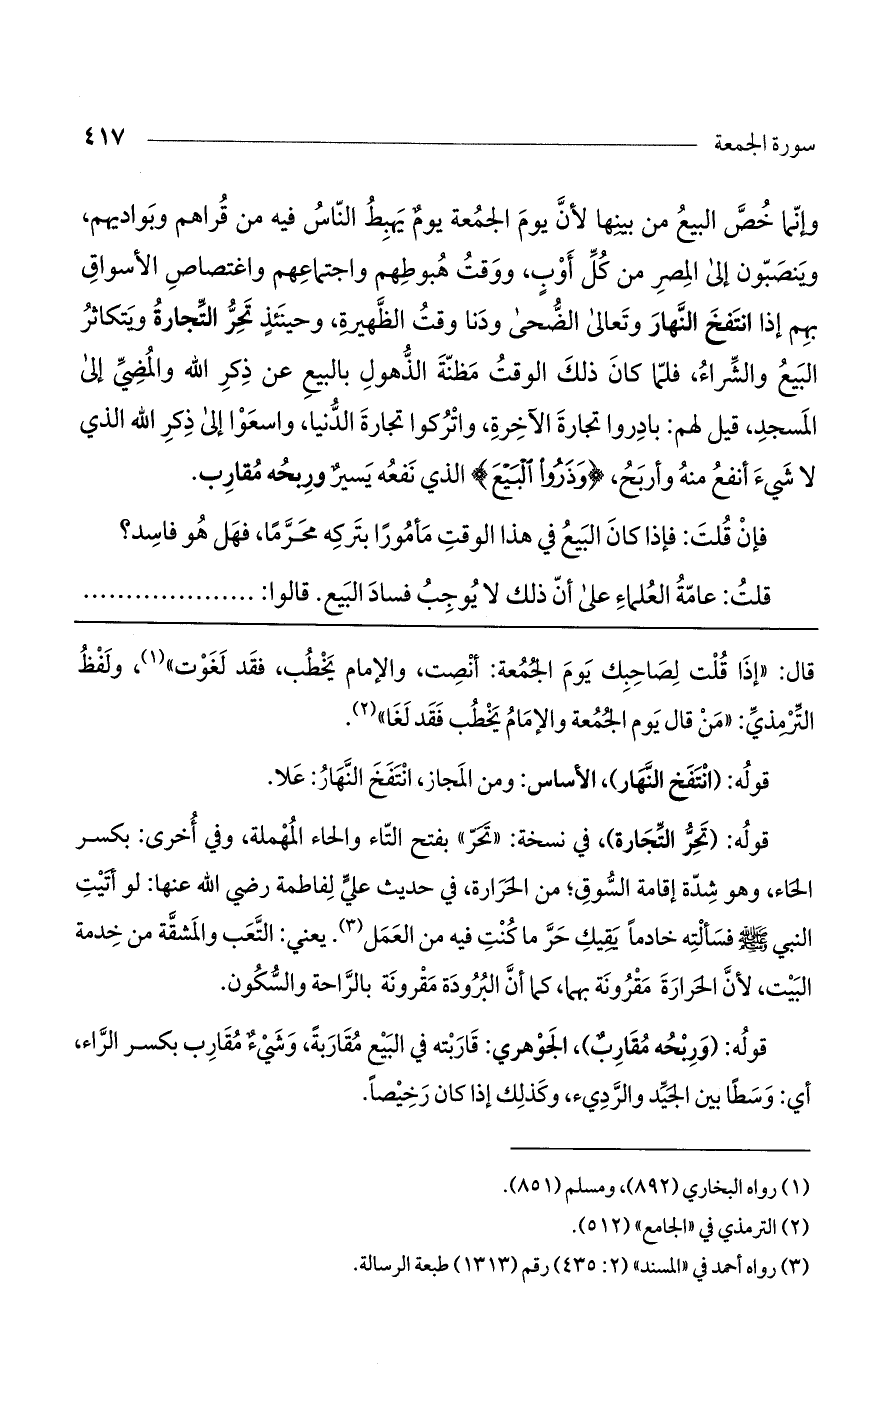 سورة الجمعة ٤١٧
وإنّما خُصَّ البيعُ من بينِها لأنَّ يومَ الجمُعة يومٌ يَهبِطُ النّاسُ فيه من قُراهم وبَواديهم،
ويَنصَبّون إلىٰ المِصرِ من كُلِّ أَوْبٍ، ووَقتُ هُبوطِهم واجتِماعِهم واغتصاصِ الأسواقِ
بهِم إذا انتَفخَ النَّهارَ وتَعالىٰ الضُّحىٰ ودَنا وقتُ الظَّهيرةِ، وحينَئذٍ تَحِرُّ التِّجارةُ ويَتكاثرُ
البَيعُ والشِّراءُ، فلمّا كانَ ذلكَ الوقتُ مَظنّةَ الذُّهولِ بالبيعِ عن ذِكرِ الله والمُضِيِّ إلىٰ
المَسجدِ، قيل لهم: بادِروا تجارةَ الآخِرةِ، واتْرُكوا تجارةَ الدُّنيا، واسعَوْا إلىٰ ذِكرِ الله الذي
لا شَيءَ أنفعُ منهُ وأربَحُ، ﴿وَذَرُوا۟ ٱلْبَيْعَ﴾ الذي نَفعُه يَسيرٌ ورِبحُه مُقارِب.
فإنْ قُلتَ: فإذا كانَ البَيعُ في هذا الوقتِ مَأمُورًا بتَركِه محَرَّمًا، فهَل هُو فاسِد؟
قلتُ: عامّةُ العُلماءِ علىٰ أنّ ذلك لا يُوجِبُ فسادَ البَيع. قالوا: ....................
قال: «إذَا قُلْت لِصَاحِبِك يَومَ الجُمُعة: أنْصِت، والإمام يَخْطُب، فقَد لَغَوْت»(١)، ولَفْظُ
التِّرْمِذيِّ: «مَنْ قال يَوم الجُمُعة والإمَامُ يَخْطُب فَقَد لَغَا»(٢).
قولُه: (انْتَفَخ النَّهَار)، الأساس: ومن المَجاز، انْتَفَخَ النَّهَارُ: عَلا.
قولُه: (تَحِرُّ التِّجَارة)، في نسخة: «تَحَرّ» بفتح التّاء والحاء المُهْملة، وفي أُخرى: بكسر
الحَاء، وهو شِدّة إقامة السُّوقِ؛ من الحَرَارة، في حديث عليٍّ لِفاطمة رضي الله عنها: لو أتَيْتِ
النبي ﷺ فسَألْتِه خادماً يَقِيكِ حَرَّ ما كُنْتِ فيه من العَمَل(٣). يعني: التَّعَب والمَشقَّة من خِدمة
البَيْت، لأنَّ الحَرارَةَ مَقْرُونَة بهما، كما أنَّ البُرُودَة مَقْرونَة بالرَّاحة والسُّكُون.
قولُه: (وَرِبْحُه مُقَارِبٌ)، الجَوْهري: قَارَبْته في البَيْع مُقَارَبةً، وَشَيْءٌ مُقَارِب بكسر الرَّاء،
أي: وَسَطًا بين الجَيِّد والرَّدِيء، وكَذلِك إذا كان رَخِيْصاً.
(١) رواه البخاري (٨٩٢)، ومسلم (٨٥١).
(٢) الترمذي في «الجامع» (٥١٢).
(٣) رواه أحمد في «المسند» (٢: ٤٣٥) رقم (١٣١٣) طبعة الرسالة.